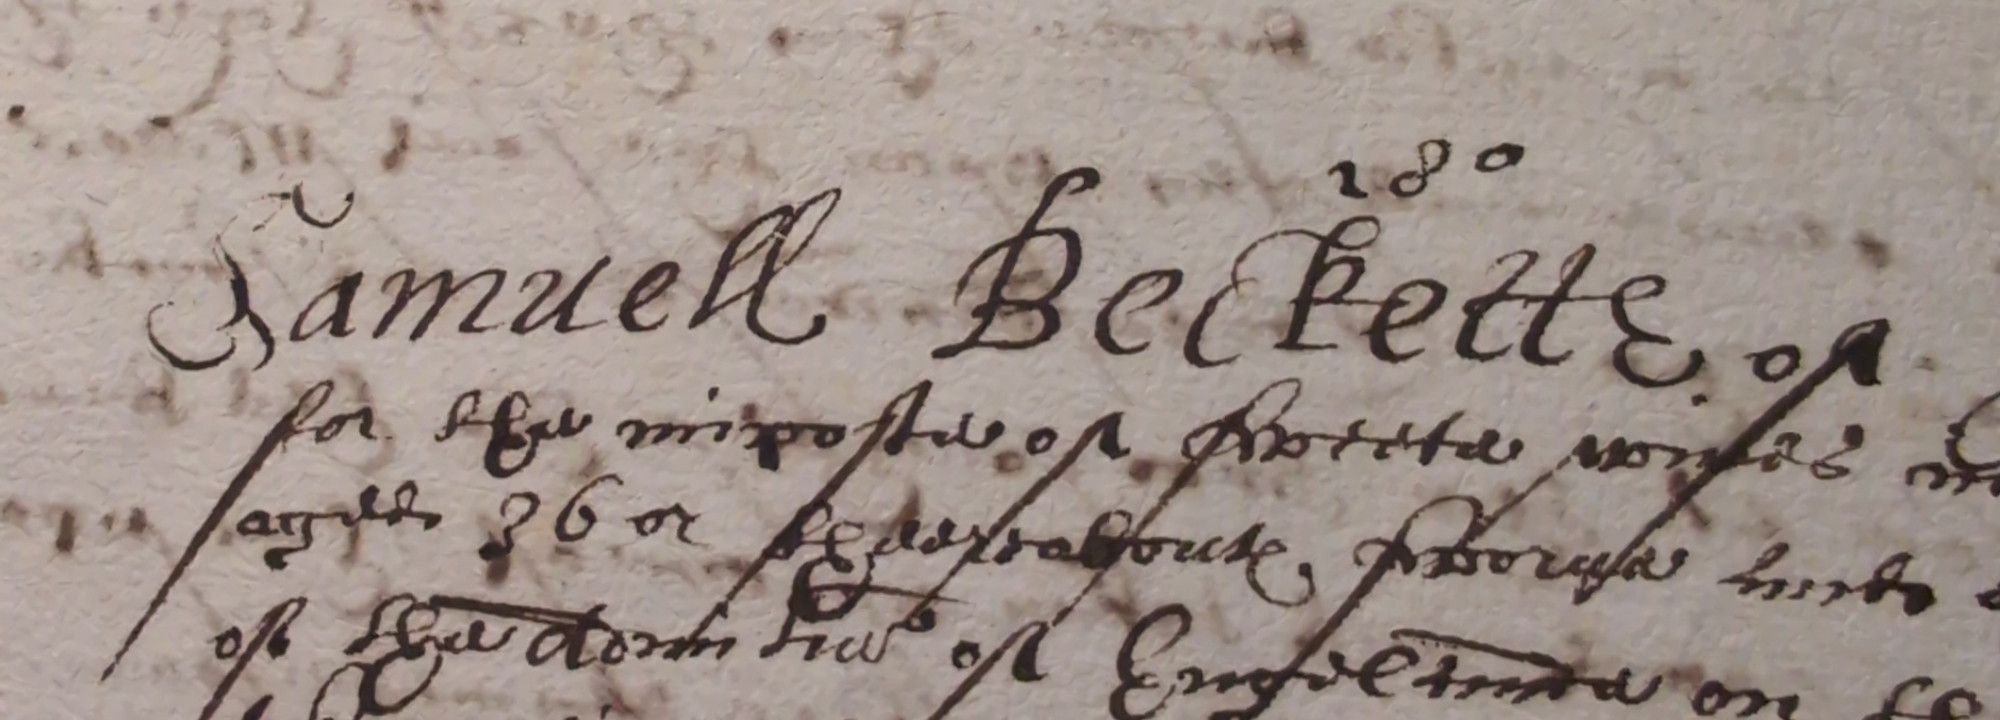 18º
Samuell Beckette of
for the imposte of sweete wines
aged 36 or thereabouts sworne
of the domi of England on